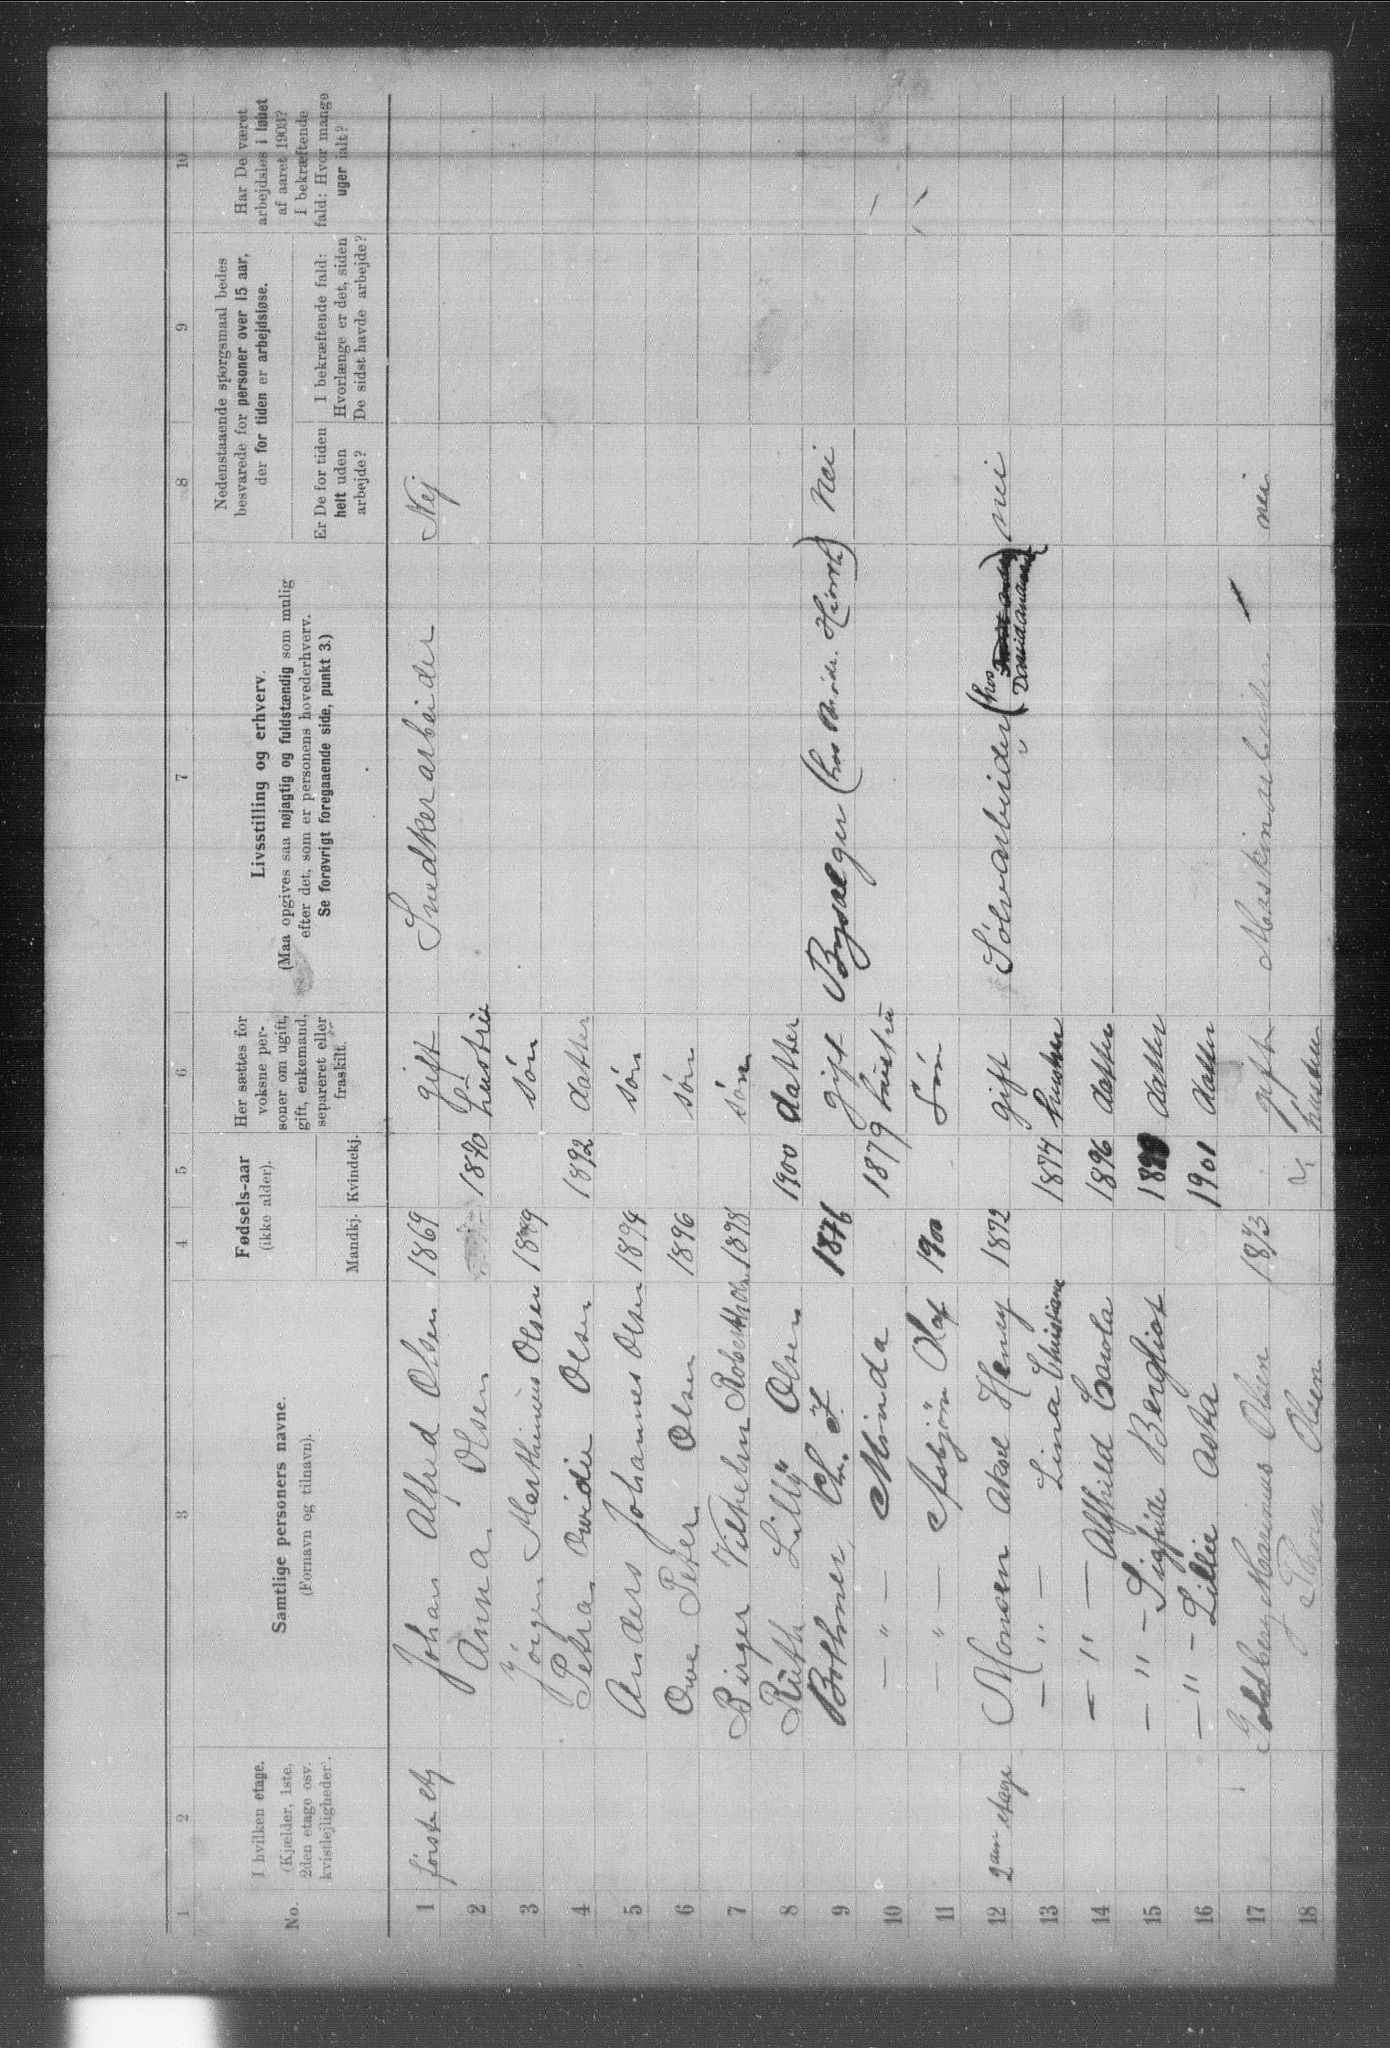 1 2 3 4 5 6 7 8 9 10
No.
I hvilken etage.
(Kjælder, 1ste,
2den etage osv.
kvistlejligheder).
Samtlige personers navne.
(Fornavn og tilnavn).
Fødsels-aar
(ikke alder).
Mandkj. Kvindekj.
Her sættes for
voksne per-
soner om ugift,
gift, enkemand,
separeret eller
fraskilt.
Livsstilling og erhverv.
(Maa opgives saa nøjagtig og fuldstændig som mulig
efter det, som er personens hovederhverv.
Se forøvrigt foregaaende side, punkt 3.)
Nedenstaaende spørgsmaal bedes
besvarede for personer over 15 aar,
der for tiden er arbejdsløse.
Er De for tiden
helt uden
arbejde?
I bekræftende fald:
Hvorlænge er det, siden
De sidst havde arbejde?
Har De været
arbejdsløs i løbet
af aaret 1903?
I bekræftende
fald: Hvor mange
uger ialt?
1 første etg Johan Alfred Olsen 1869 gift Snedkerarbeider Nej
2 Anna Olsen 1870 hustrü
3 Jörgen Marthinius Olsen 1889 sön
4 Petra Ovidie Olsen 1892 datter
5 Anders Johannes Olsen 1894 sön
6 Ove Peter Olsen 1896 sön
7 Birger Vilhelm Robert Olsen 1898 sön
8 Rüth Lilly Olsen 1900 datter
9 Bothner, Chr. F. 1876 gift Bygselger (hos Hiorth) Nei
10 — " — Minda 1879 hustrü
11 — " — Asbjörn Olaf 1900 Sön
12 2den etage Monsen Aksel Henry 1872 gift Sølvarbeider (hos Davidandersen) nei
13 — " — Lina Christiane 1874 hustru
14 — " — Alfhild Carola 1896 datter
15 — " — Sigfride Bergliot datter
16 — " — Lillie Asta 1901 datter
17 Goldberg Maximus Olsen 1873 gift Maskinarbeider nei
18 Thora Olsen hustru